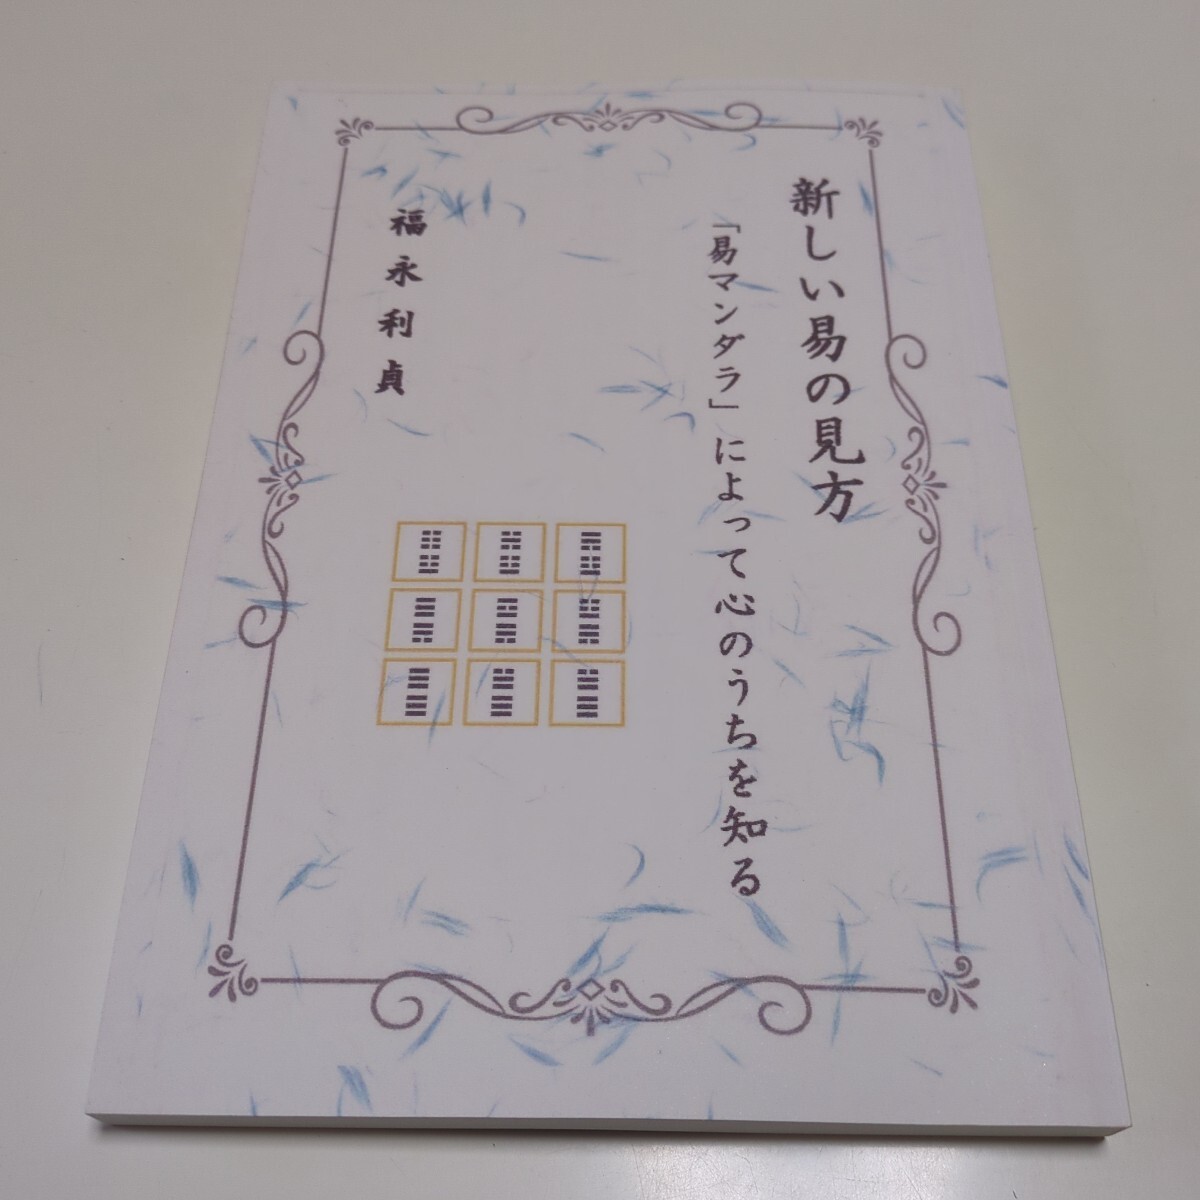 新しい易の見方
「易マンダラ」によって心のうちを知る
福永利貞